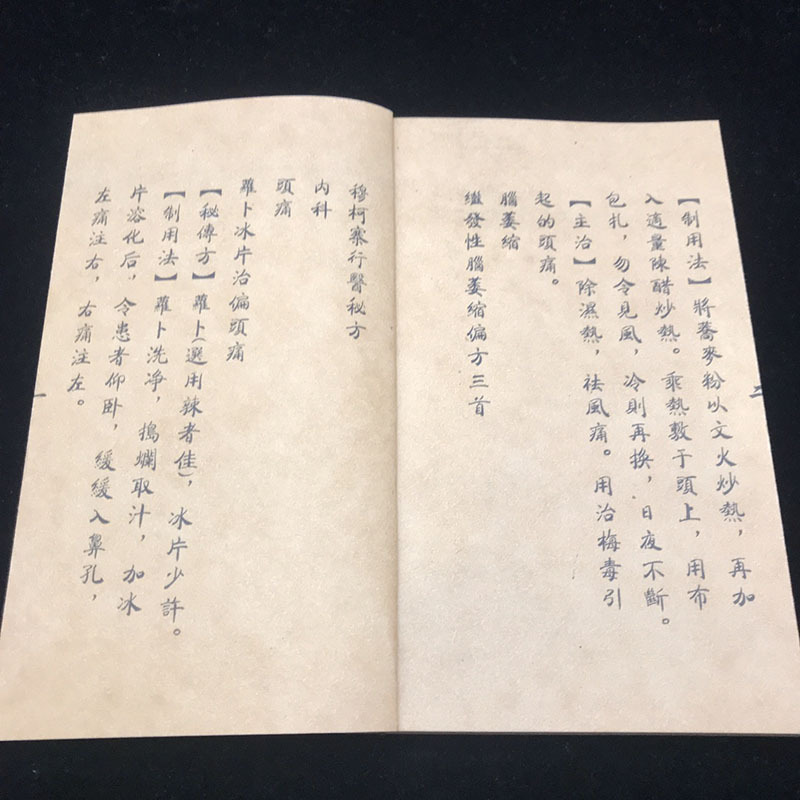 【制用法】將蕎麥粉以文火炒熱，再加
入適量陳醋炒熱。乘熱敷于頭上，用布
包扎，勿令見風，冷則再換，日夜不斷。
【主治】除濕熱，祛風痛。用治梅毒引
起的頭痛。
腦萎縮
繼發性腦萎縮偏方三首
二
穆柯寨行醫秘方
内科
頭痛
蘿卜冰片治偏頭痛
【秘傳方】蘿卜(選用辣者佳)，冰片少許。
【制用法】蘿卜洗净，搗爛取汁，加冰
片溶化后，令患者仰卧，緩緩入鼻孔，
左痛注右，右痛注左。
一